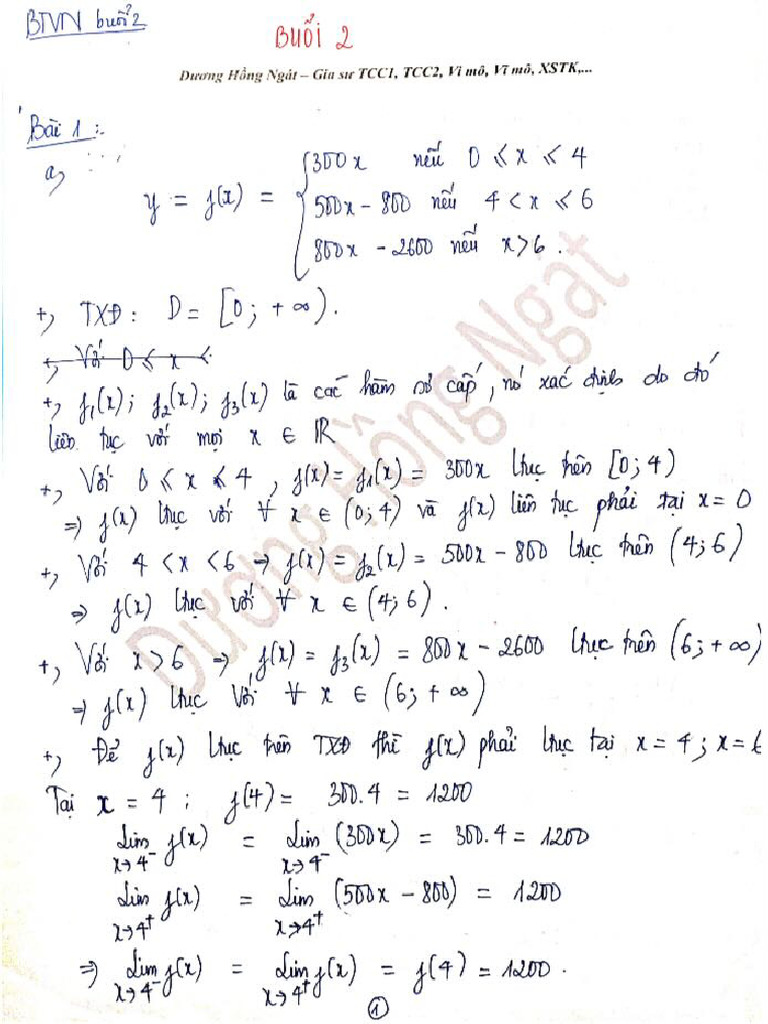 BTVN buổi 2
BUỔI 2
Dương Hồng Ngát – Gia sư TCC1, TCC2, Vi mô, Vĩ mô, XSTK,...
Bài 1:
a,
y = f(x) = { 300x nếu 0 ≤ x ≤ 4
500x - 800 nếu 4 < x ≤ 6
800x - 2600 nếu x > 6.
+, TXĐ: D = [0; +∞).
+, Với 0 ≤ x <
+, f₁(x); f₂(x); f₃(x) là các hàm sơ cấp, nó xác định do đó
liên tục với mọi x ∈ ℝ
+, Với 0 ≤ x < 4, f(x) = f₁(x) = 300x ltục trên [0; 4)
⇒ f(x) ltục với ∀ x ∈ (0; 4) và f(x) liên tục phải tại x = 0
+, Với 4 < x < 6 ⇒ f(x) = f₂(x) = 500x - 800 ltục trên (4; 6)
⇒ f(x) ltục với ∀ x ∈ (4; 6).
+, Với x > 6 ⇒ f(x) = f₃(x) = 800x - 2600 ltục trên (6; +∞)
⇒ f(x) ltục với ∀ x ∈ (6; +∞)
+, Để f(x) ltục trên TXĐ thì f(x) phải ltục tại x = 4; x = 6
Tại x = 4: f(4) = 300.4 = 1200
Lim x→4⁻ f(x) = Lim x→4⁻ (300x) = 300.4 = 1200
Lim x→4⁺ f(x) = Lim x→4⁺ (500x - 800) = 1200
⇒ Lim x→4⁻ f(x) = Lim x→4⁺ f(x) = f(4) = 1200.
1
Dương Hồng Ngát